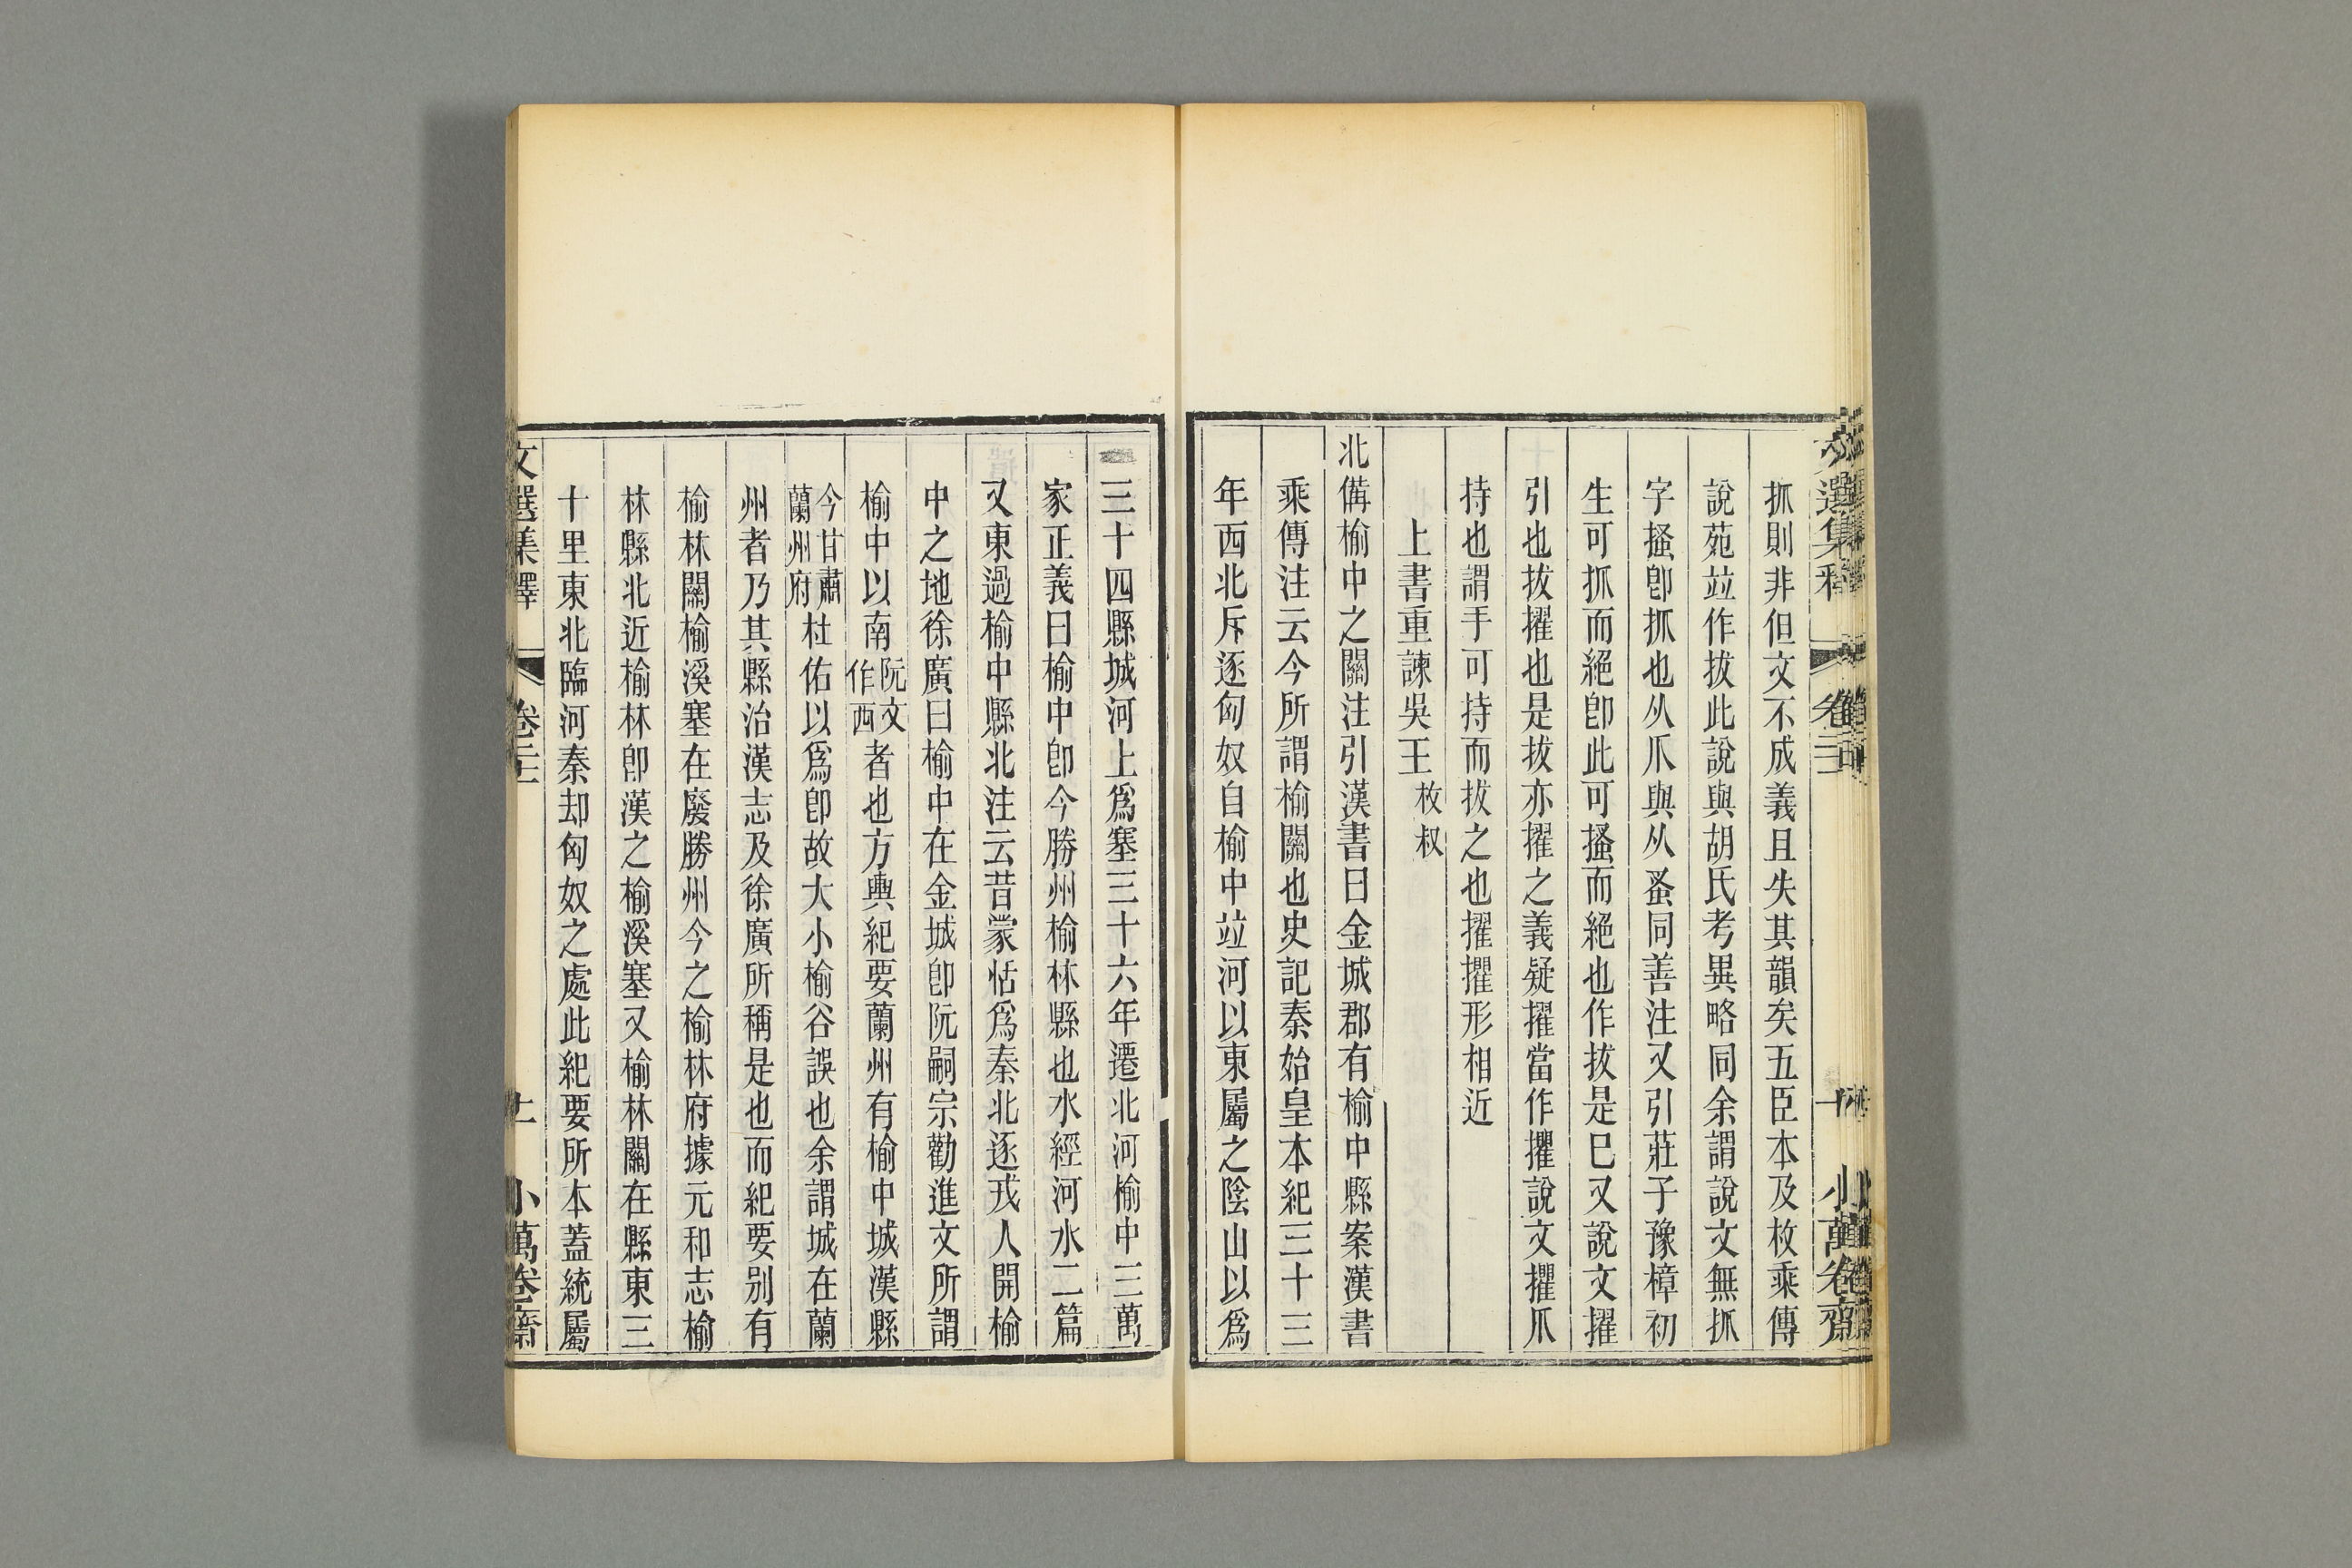 抓則非但文不成義且失其韻矣五臣本及枚乘傳
說苑竝作拔此說與胡氏考異略同余謂說文無抓
字搔卽抓也从爪與从蚤同善注又引莊子豫樟初
生可抓而絕卽此可搔而絕也作拔是巳又說文擢
引也拔擢也是拔亦擢之義疑擢當作攫說文攫爪
持也謂手可持而拔之也擢攫形相近
上書重諫吳王 枚叔
北備榆中之關注引漢書曰金城郡有榆中縣案漢書
乘傳注云今所謂榆關也史記秦始皇本紀三十三
年西北斥逐匈奴自榆中竝河以東屬之陰山以爲
三十四縣城河上爲塞三十六年遷北河榆中三萬
家正義曰榆中卽今勝州榆林縣也水經河水二篇
又東過榆中縣北注云昔蒙恬爲秦北逐戎人開榆
中之地徐廣曰榆中在金城卽阮嗣宗勸進文所謂
榆中以南阮文作西者也方輿紀要蘭州有榆中城漢縣
今甘肅蘭州府杜佑以爲卽故大小榆谷誤也余謂城在蘭
州者乃其縣治漢志及徐廣所稱是也而紀要别有
榆林關榆溪塞在廢勝州今之榆林府據元和志榆
林縣北近榆林卽漢之榆溪塞又榆林關在縣東三
十里東北臨河秦却匈奴之處此紀要所本蓋統屬
文選集釋 卷二十二 十一 小萬卷齋